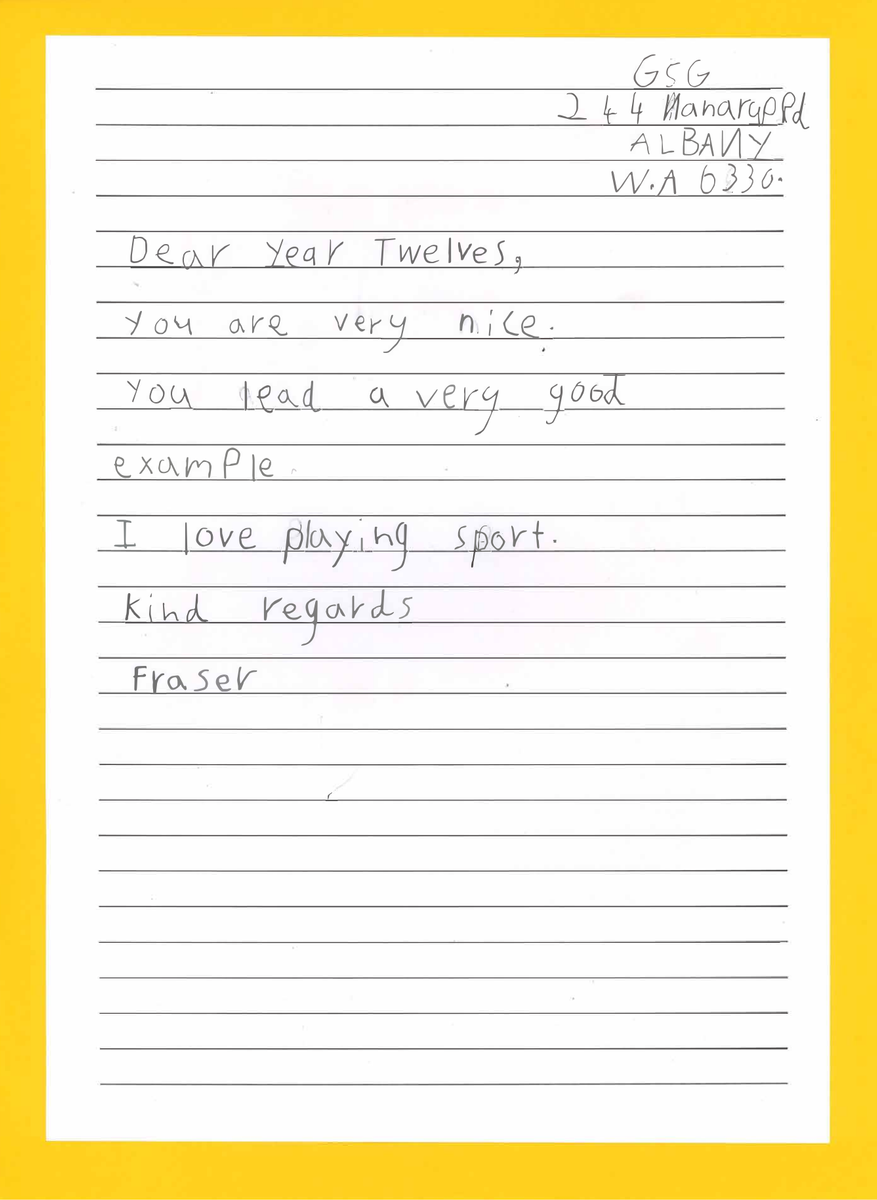 GSG
244 Nanarup Rd
ALBANY
W.A 6330.
Dear Year Twelves,
You are very nice.
You lead a very good
example.
I love playing sport.
Kind regards
Fraser